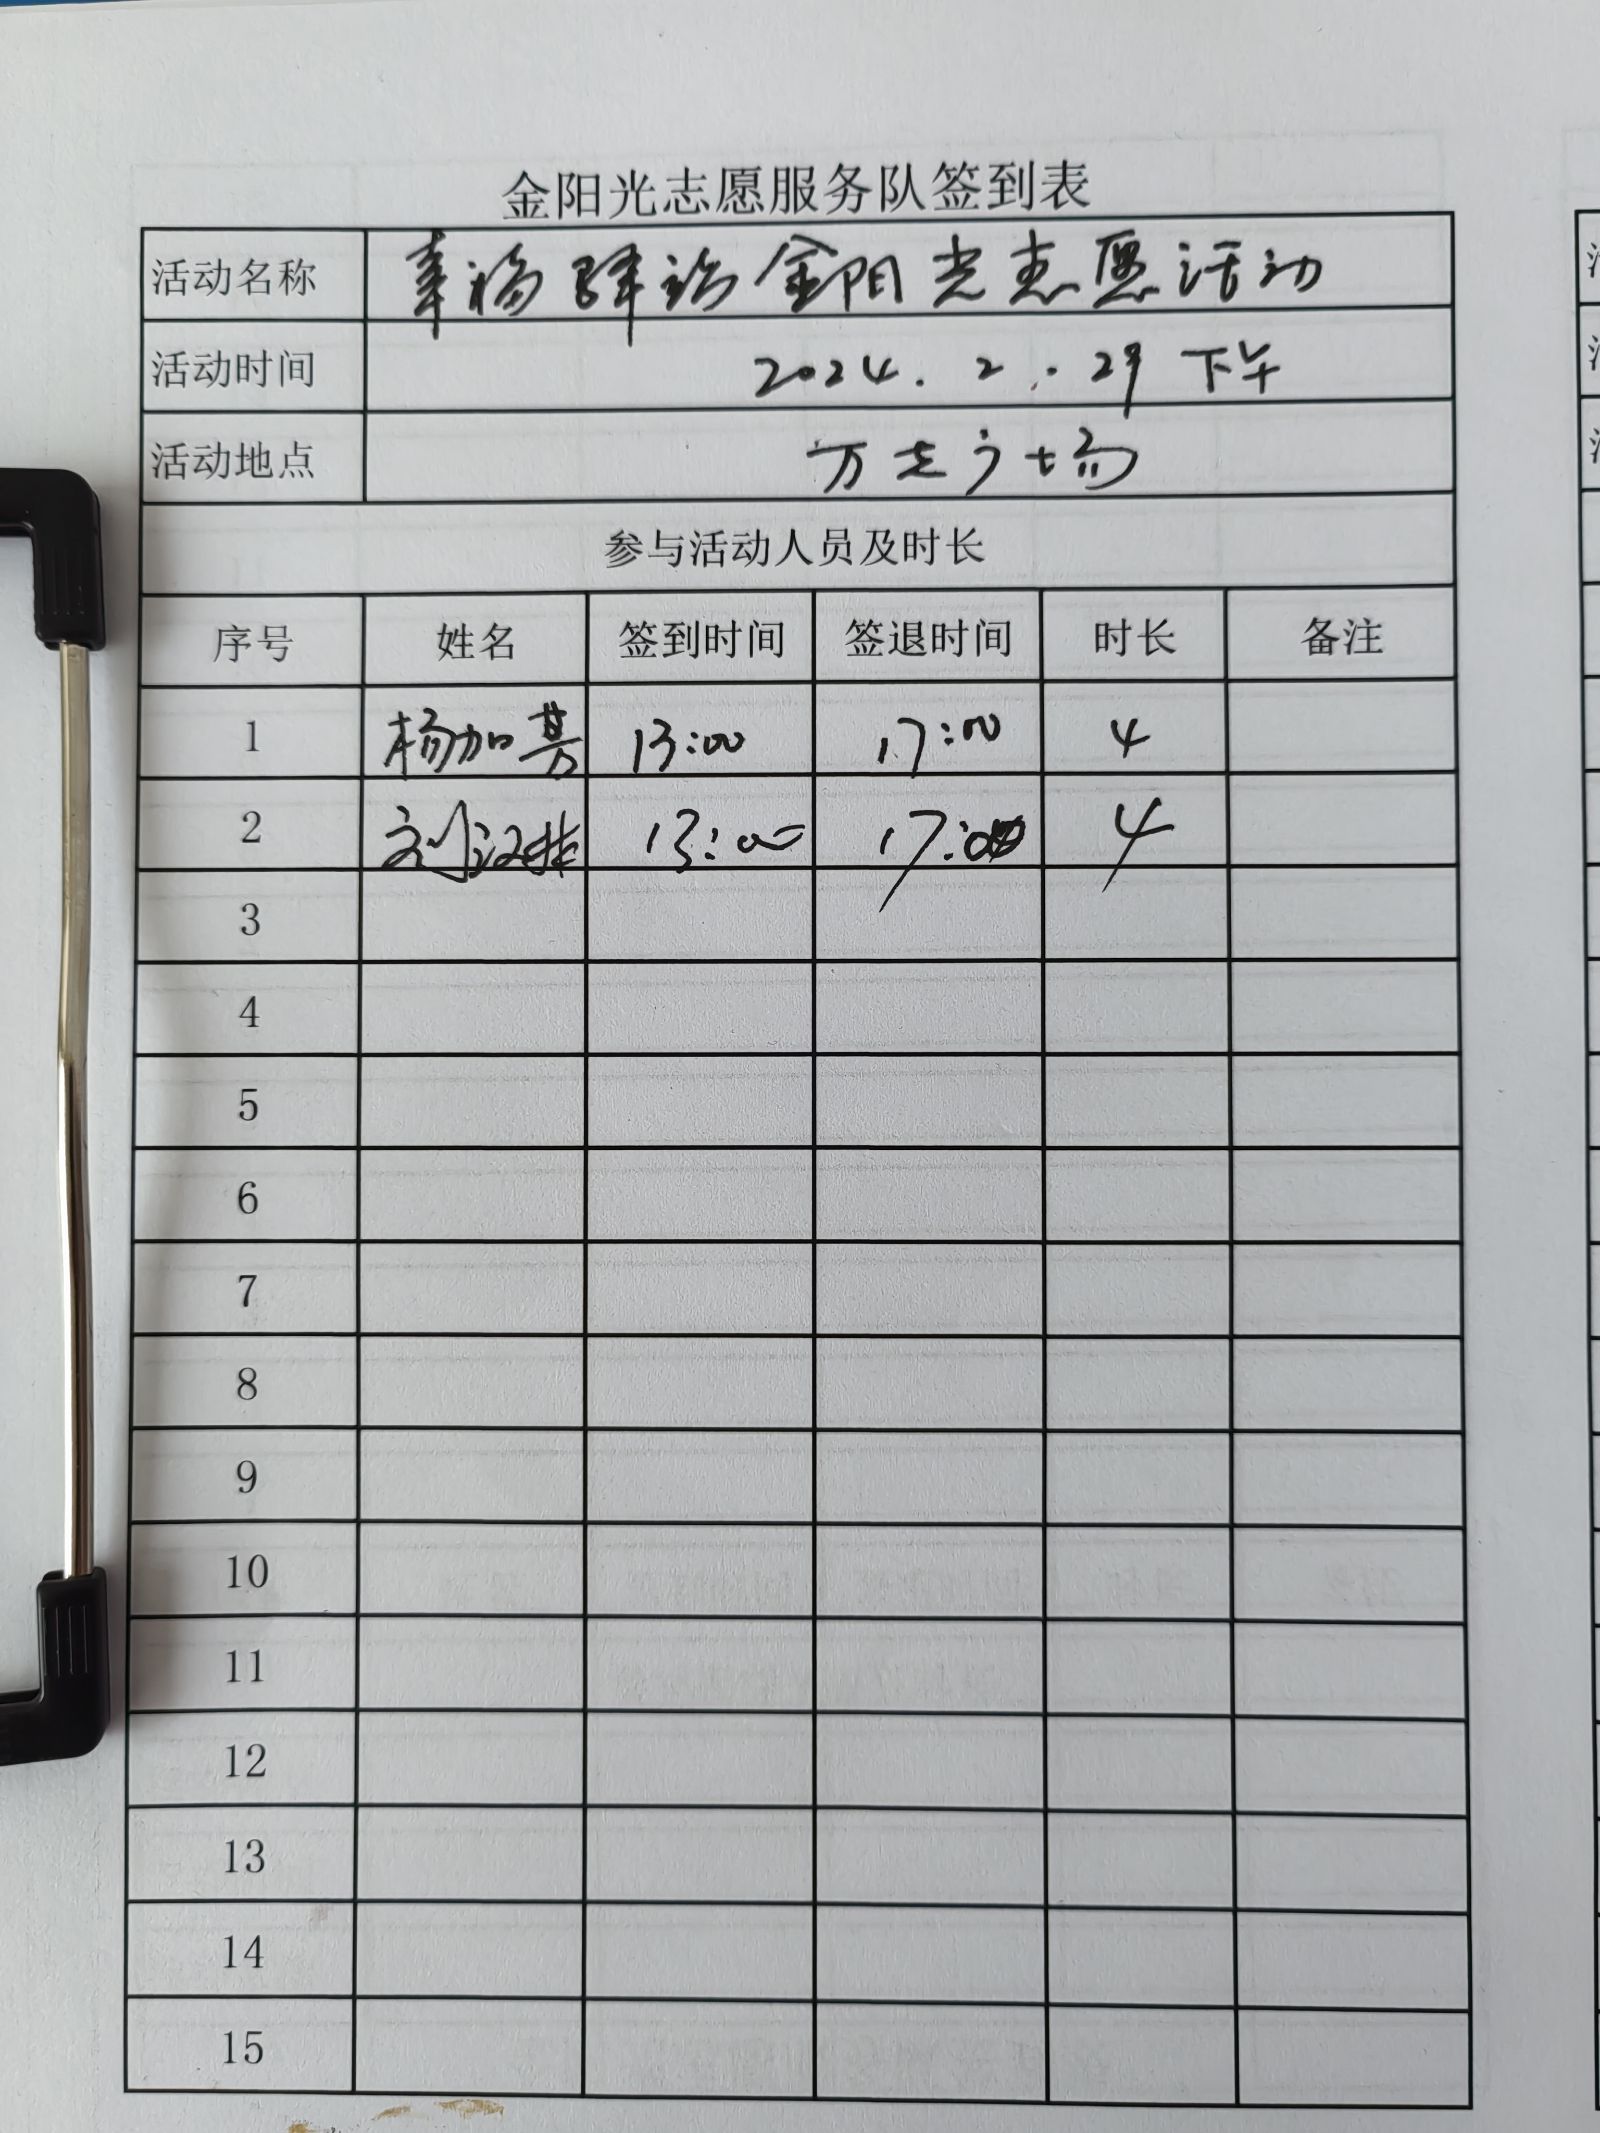 金阳光志愿服务队签到表
活动名称 幸福驿站金阳光志愿活动
活动时间 2024.2.29 下午
活动地点 万达广场
参与活动人员及时长
序号 姓名 签到时间 签退时间 时长 备注
1 杨加 13:00 17:00 4
2 刘汉 13:00 17:00 4
3
4
5
6
7
8
9
10
11
12
13
14
15